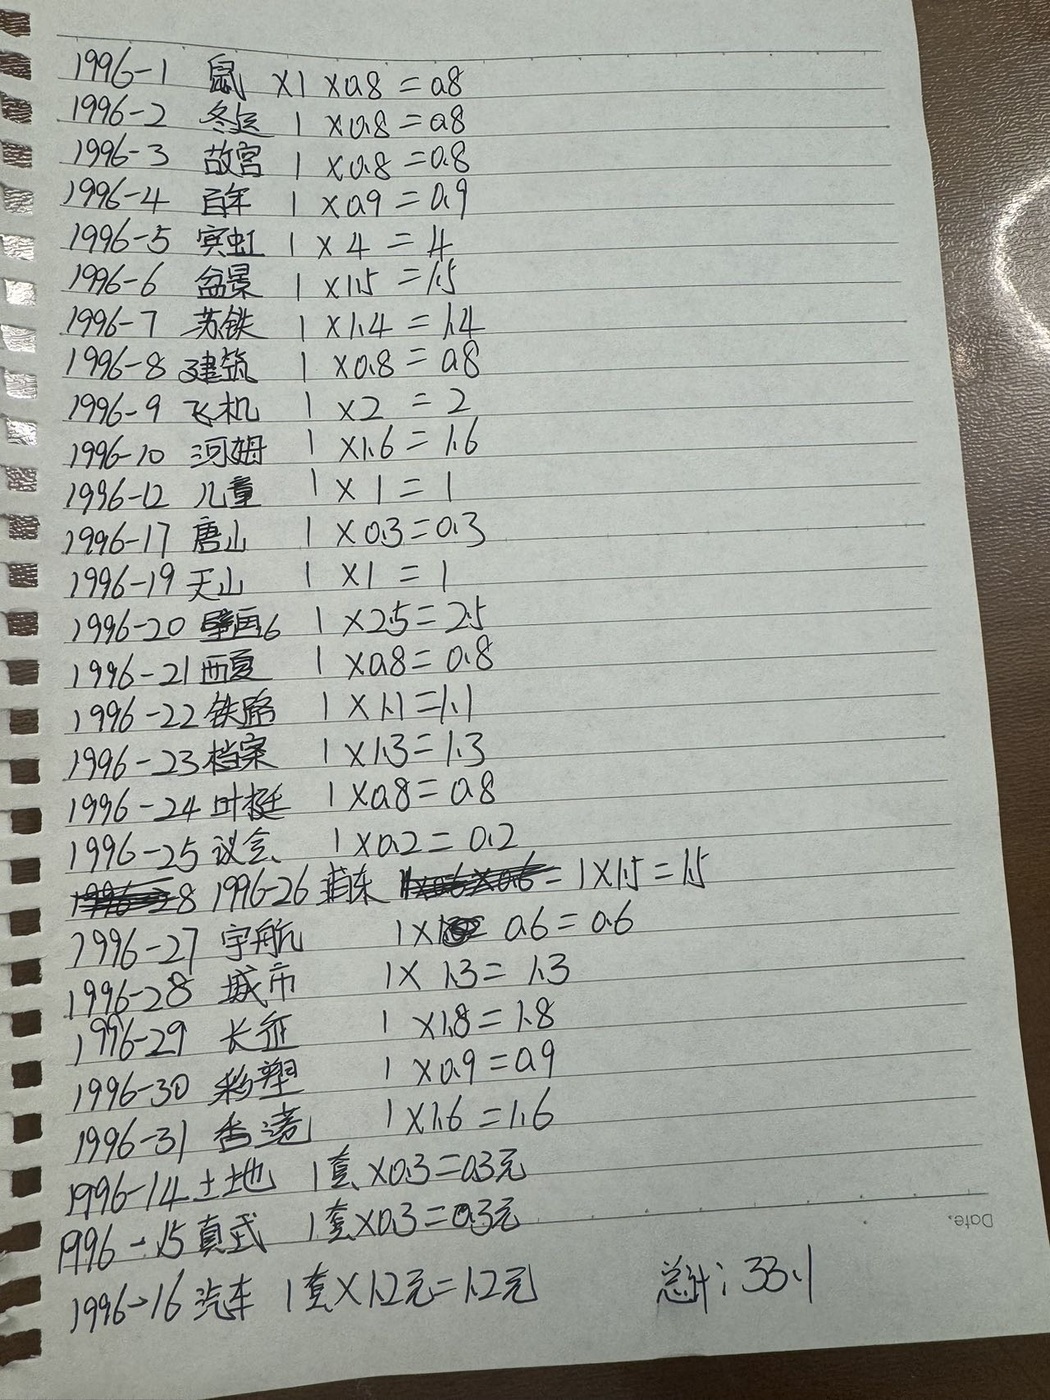 1996-1 鼠 ×1 ×0.8=0.8
1996-2 冬运 1 ×0.8=0.8
1996-3 故宫 1 ×0.8=0.8
1996-4 百年 1 ×0.9=0.9
1996-5 宾虹 1 ×4=4
1996-6 盆景 1 ×1.5=1.5
1996-7 苏铁 1 ×1.4=1.4
1996-8 建筑 1 ×0.8=0.8
1996-9 飞机 1 ×2=2
1996-10 河姆 1 ×1.6=1.6
1996-12 儿童 1 ×1=1
1996-17 唐山 1 ×0.3=0.3
1996-19 天山 1 ×1=1
1996-20 壁画6 1 ×2.5=2.5
1996-21 西夏 1 ×0.8=0.8
1996-22 铁路 1 ×1.1=1.1
1996-23 档案 1 ×1.3=1.3
1996-24 叶挺 1 ×0.8=0.8
1996-25 议会 1 ×0.2=0.2
1996-26 浦东 1×1.5=1.5
1996-27 宇航 1× 0.6=0.6
1996-28 城市 1× 1.3=1.3
1996-29 长征 1 ×1.8=1.8
1996-30 彩塑 1 ×0.9=0.9
1996-31 香港 1 ×1.6=1.6
1996-14 土地 1套×0.3=0.3元
1996-15 真武 1套×0.3=0.3元
1996-16 汽车 1套×1.2元=1.2元 总计:33.1
Date.